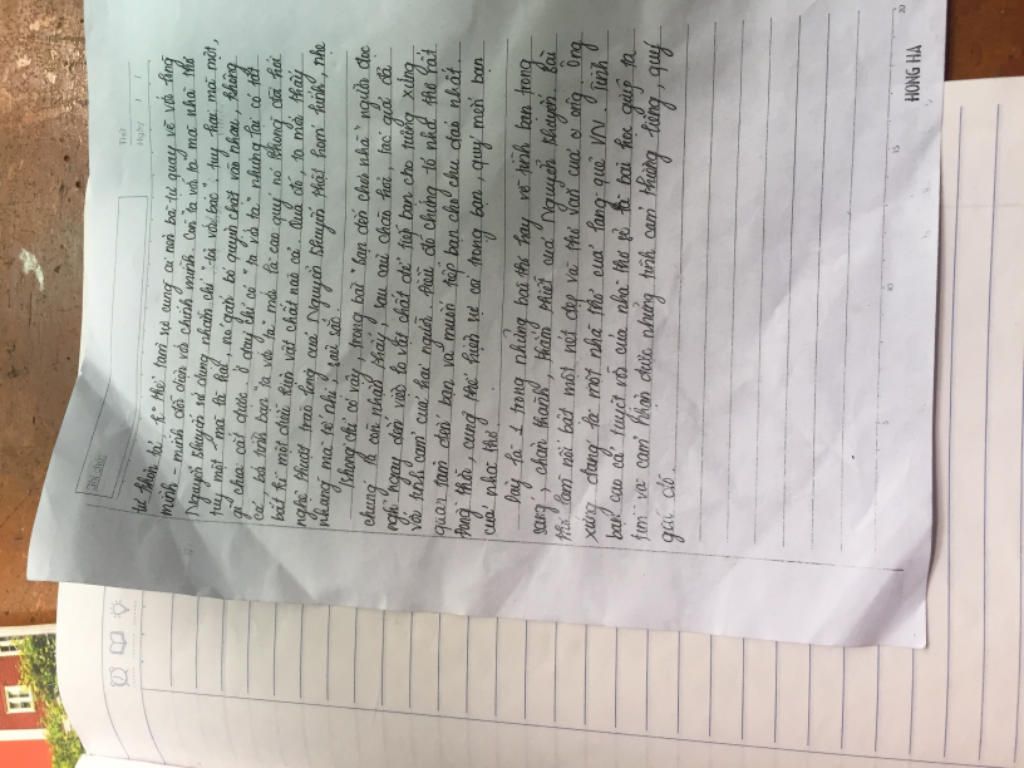 Thứ
Ngày / /
từ thời ta, ta thế tam sự cung cả nơi ba từ quay về với lòng
mình - mình đối diện với chính mình. Còn ta với ta mà nhà thơ
Nguyễn Khuyến sử dụng nhằm chỉ "tôi với bác", tuy hai mà một,
tuy một mà là hai, nó gắn bó quyện chặt vào nhau, không
gì chia cắt được. Ở đây chỉ có "ta với ta" nhưng lại có tất
cả, bởi tình bạn "ta với ta" mới là cao quý nó không đòi hỏi
bất kì một điều kiện vật chất nào cả. Qua đó, ta mới thấy
nghệ thuật trào lộng của Nguyễn Khuyến thật hóm hỉnh, nhẹ
nhàng mà tế nhị, sâu sắc.
Không chỉ có vậy, trong bài "Bạn đến chơi nhà" người đọc
chúng ta còn nhận thấy, sau cái chân thơ, tác giả đã
nghĩ ngay đến việc lo vật chất để tiếp bạn cho xứng
với tình cảm của hai người. Điều đó chứng tỏ nhà thơ rất
quan tâm đến bạn và muốn tiếp bạn cho chu đáo nhất
đồng thời, cũng thể hiện sự coi trọng bạn, quý mến bạn
của nhà thơ.
Đây là 1 trong những bài thơ hay về tình bạn trong
sáng, chân thành, thắm thiết của Nguyễn Khuyến. Bài
thơ làm nổi bật một nét đẹp và thơ văn của ông. Ông
xứng đáng là một nhà thơ của làng quê VN. Tình
bạn cao cả tuyệt vời của nhà thơ sẽ là bài học giúp ta
tìm và cảm nhận được những tình cảm thiêng liêng, quý
giá đó.
5 10 15 20
HONG HA